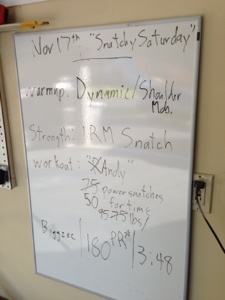 Nov 17th "Snatchy Saturday"
Warmup: Dynamic/Shoulder
Mob.
Strength: 1RM Snatch
Workout: "Andy"
75 power snatches
50 for time
95 75 lbs/
180 PR* / 3:48